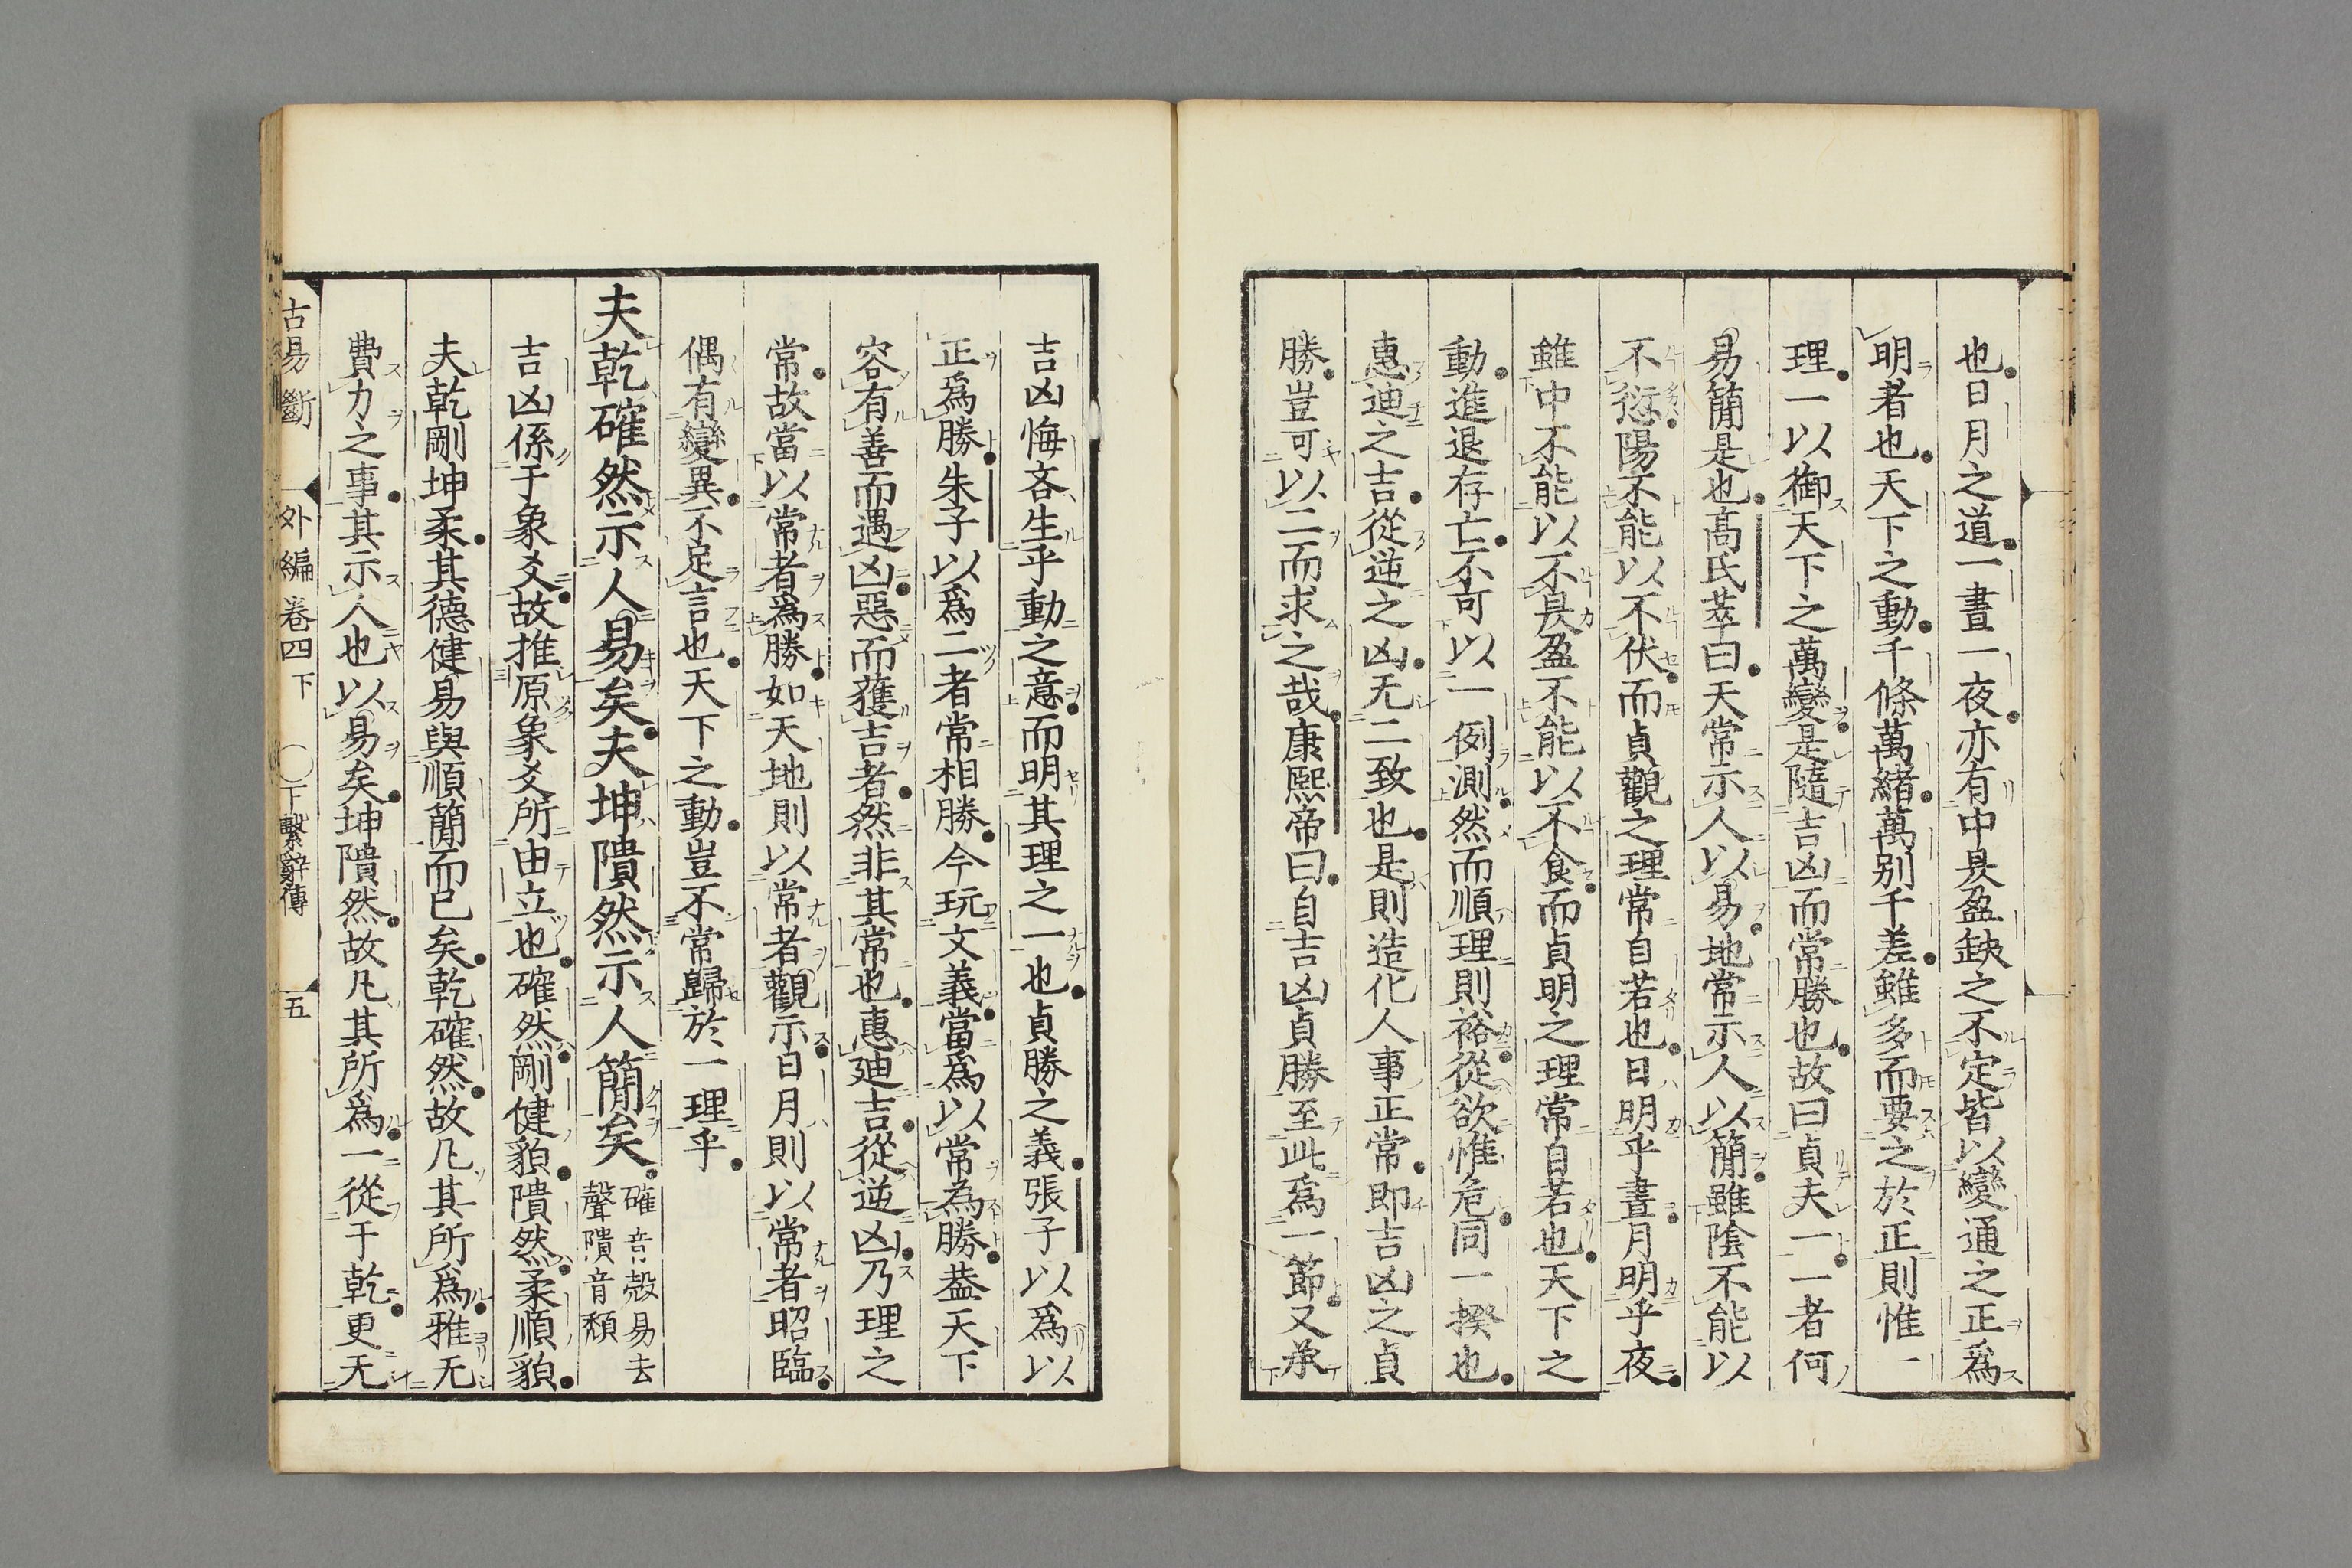 也日月之道一晝一夜亦有中昃盈缺之不定皆以變通之正爲
明者也天下之動千條萬緒萬别千差雖多而要之於正則惟一
理一以御天下之萬變是隨吉凶而常勝也故曰貞夫一一者何
易簡是也高氏萃曰天常示人以易地常示人以簡雖陰不能以
不愆陽不能以不伏而貞觀之理常自若也日明乎晝月明乎夜
雖中不能以不昃盈不能以不食而貞明之理常自若也天下之
動進退存亡不可以一例測然而順理則裕從欲惟危同一揆也
惠迪之吉從逆之凶无二致也是則造化人事正常即吉凶之貞
勝豈可以二而求之哉康熙帝曰自吉凶貞勝至此爲一節又承
吉凶悔吝生乎動之意而明其理之一也貞勝之義張子以爲以
正爲勝朱子以爲二者常相勝今玩文義當爲以常為勝葢天下
容有善而遇凶惡而獲吉者然非其常也惠廸吉從逆凶乃理之
常故當以常者爲勝如天地則以常者觀示日月則以常者昭臨
偶有變異不足言也天下之動豈不常歸於一理乎
夫乾確然示人易矣夫坤隤然示人簡矣確音殼易去
聲隤音頽
吉凶係于象爻故推原象爻所由立也確然剛健貌隤然柔順貌
夫乾剛坤柔其德健易與順簡而已矣乾確然故凡其所爲雅无
費力之事其示人也以易矣坤隤然故凡其所爲一從于乾更无
古易斷 外編 卷四下 〇下繫辭傳 五